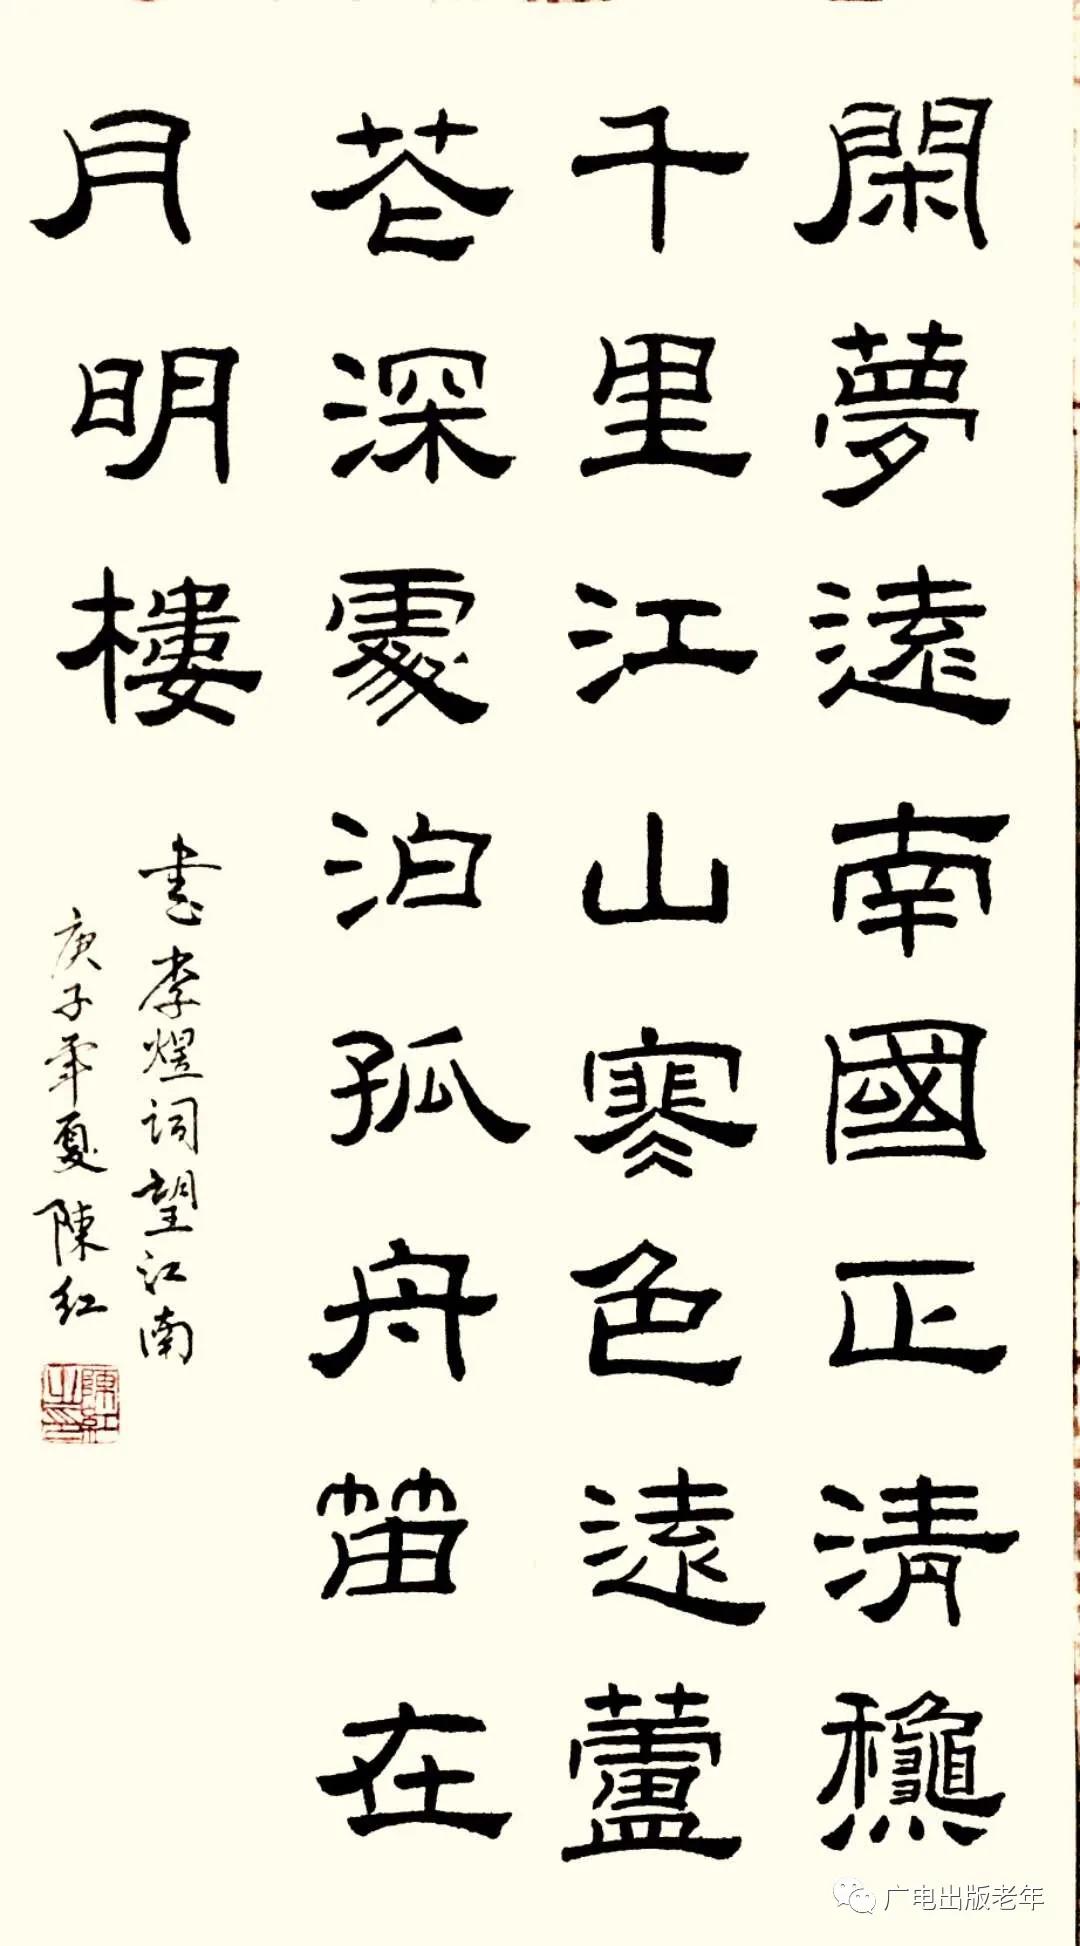 閑夢遠南國正清龝
千里江山寒色遠蘆
花深處泊孤舟笛在
月明樓
书李煜词望江南
庚子年夏陳红
陳紅之印
广电出版老年